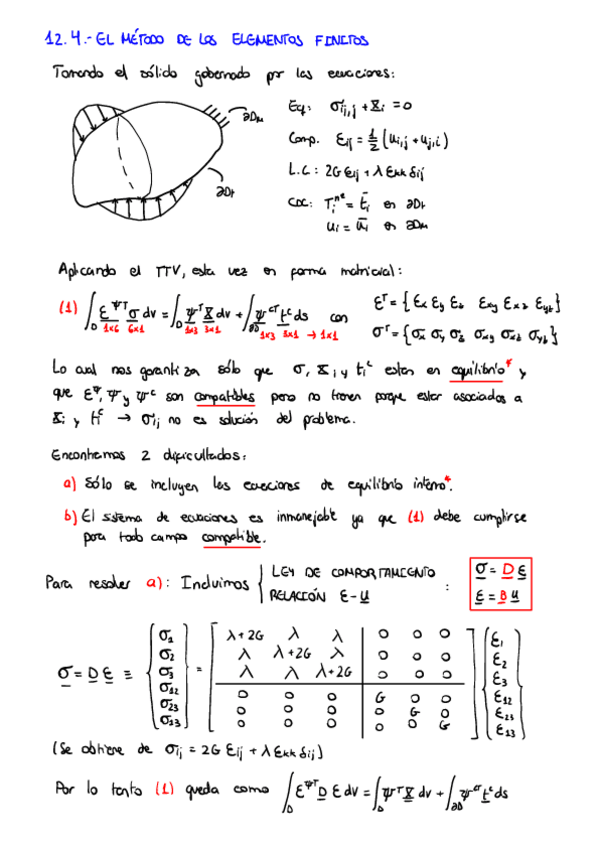 12.4.- EL MÉTODO DE LOS ELEMENTOS FINITOS
Tomando el sólido gobernado por las ecuaciones:
∂Du
∂Dt
Eq: σij,j + Xi = 0
Comp. εij = 1/2 (ui,j + uj,i)
L.C: 2G εij + λ εkk δij
CDC: Ti^nc = t̄i en ∂Dt
ui = ūi en ∂Du
Aplicando el TTV, esta vez en forma matricial:
(1) ∫D ε^ΨT σ dv = ∫D Ψ^T X dv + ∫∂D Ψ^cT t^c ds con
1x6 6x1 1x3 3x1 1x3 3x1 → 1x1
ε^T = { εx εy εz εxy εxz εyz }
σ^T = { σx σy σz σxy σxz σyz }
Lo cual nos garantiza sólo que σ, X, y ti^c estan en equilibrio* y
que ε^Ψ, Ψ y Ψ^c son compatibles pero no tienen porque estar asociados a
Xi y ti^c → σij no es solución del problema.
Encontramos 2 dificultades:
a) Sólo se incluyen las ecuaciones de equilibrio interno*.
b) El sistema de ecuaciones es inmanejable ya que (1) debe cumplirse
para todo campo compatible.
Para resolver a): Incluimos { LEY DE COMPORTAMIENTO
RELACIÓN ε-u :
σ = D ε
ε = B u
σ = D ε ≡ { σ1 σ2 σ3 σ12 σ23 σ13 } =
[ λ+2G λ λ 0 0 0
λ λ+2G λ 0 0 0
λ λ λ+2G 0 0 0
0 0 0 G 0 0
0 0 0 0 G 0
0 0 0 0 0 G ]
{ ε1 ε2 ε3 ε12 ε23 ε13 }
(Se obtiene de σij = 2G εij + λ εkk δij)
Por lo tanto (1) queda como ∫D ε^ΨT D ε dv = ∫D Ψ^T X dv + ∫∂D Ψ^cT t^c ds